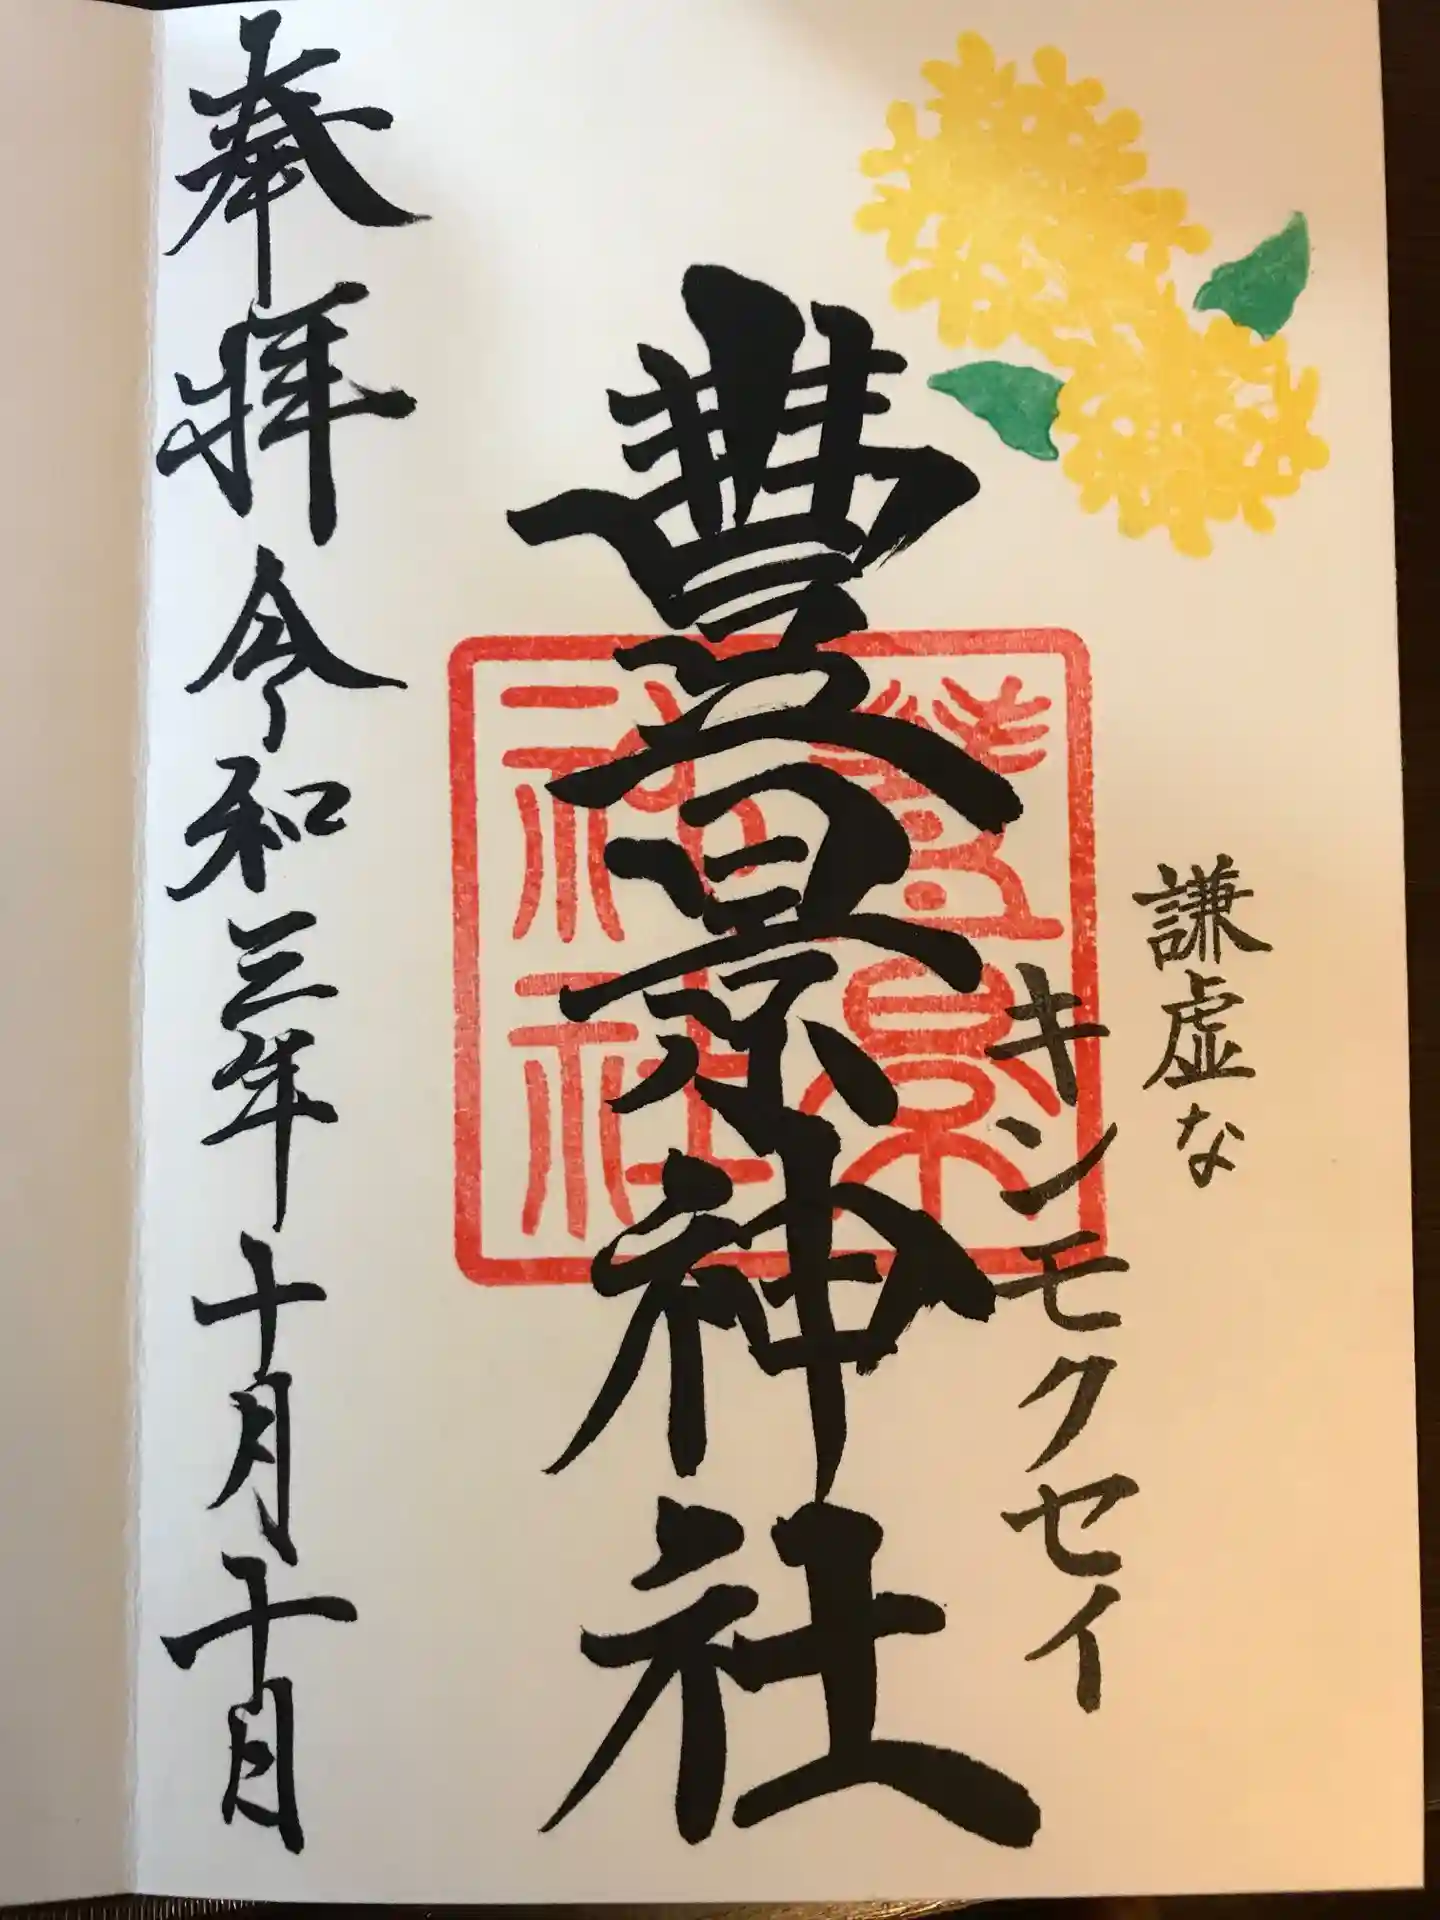 謙虚な
キンモクセイ
豊景神社
豊景
神社
奉拝 令和三年十月十日